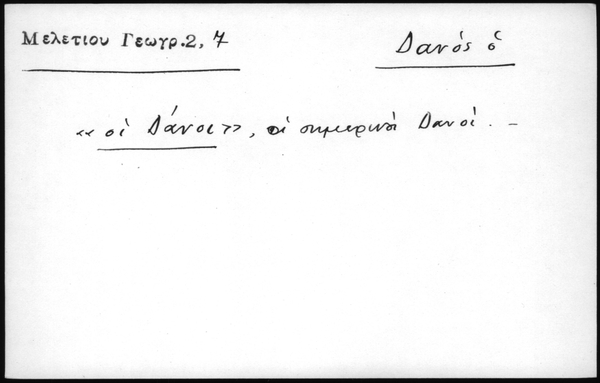 Μελετιου Γεωγρ.2, 7
Δανός ὁ
«οἱ Δάνοι», οἱ σημερινοὶ Δανοί. –